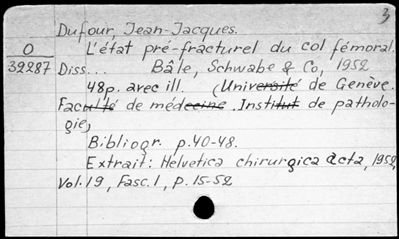 3
Dufour, Jean-Jacques.
O L'état pré-fracturel du col fémoral.
39287 Diss... Bâle, Schwabe & Co, 1952
48p. avec ill. (Université de Genève.
Faculté de médecine. Institut de patholo-
gie,
Bibliogr. p.40-48.
Extrait: Helvetica chirurgica acta, 1952,
Vol. 19, Fasc. 1, p. 15-52